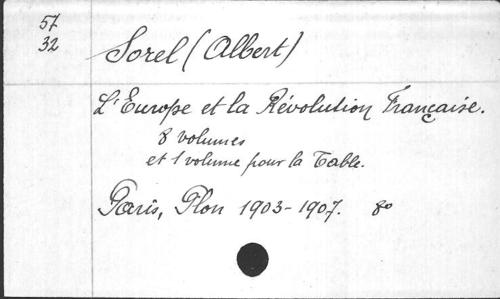 57
32
Sorel (Albert)
L'Europe et la Révolution Française.
8 volumes
et 1 volume pour la Table.
Paris, Plon 1903-1907. 8º